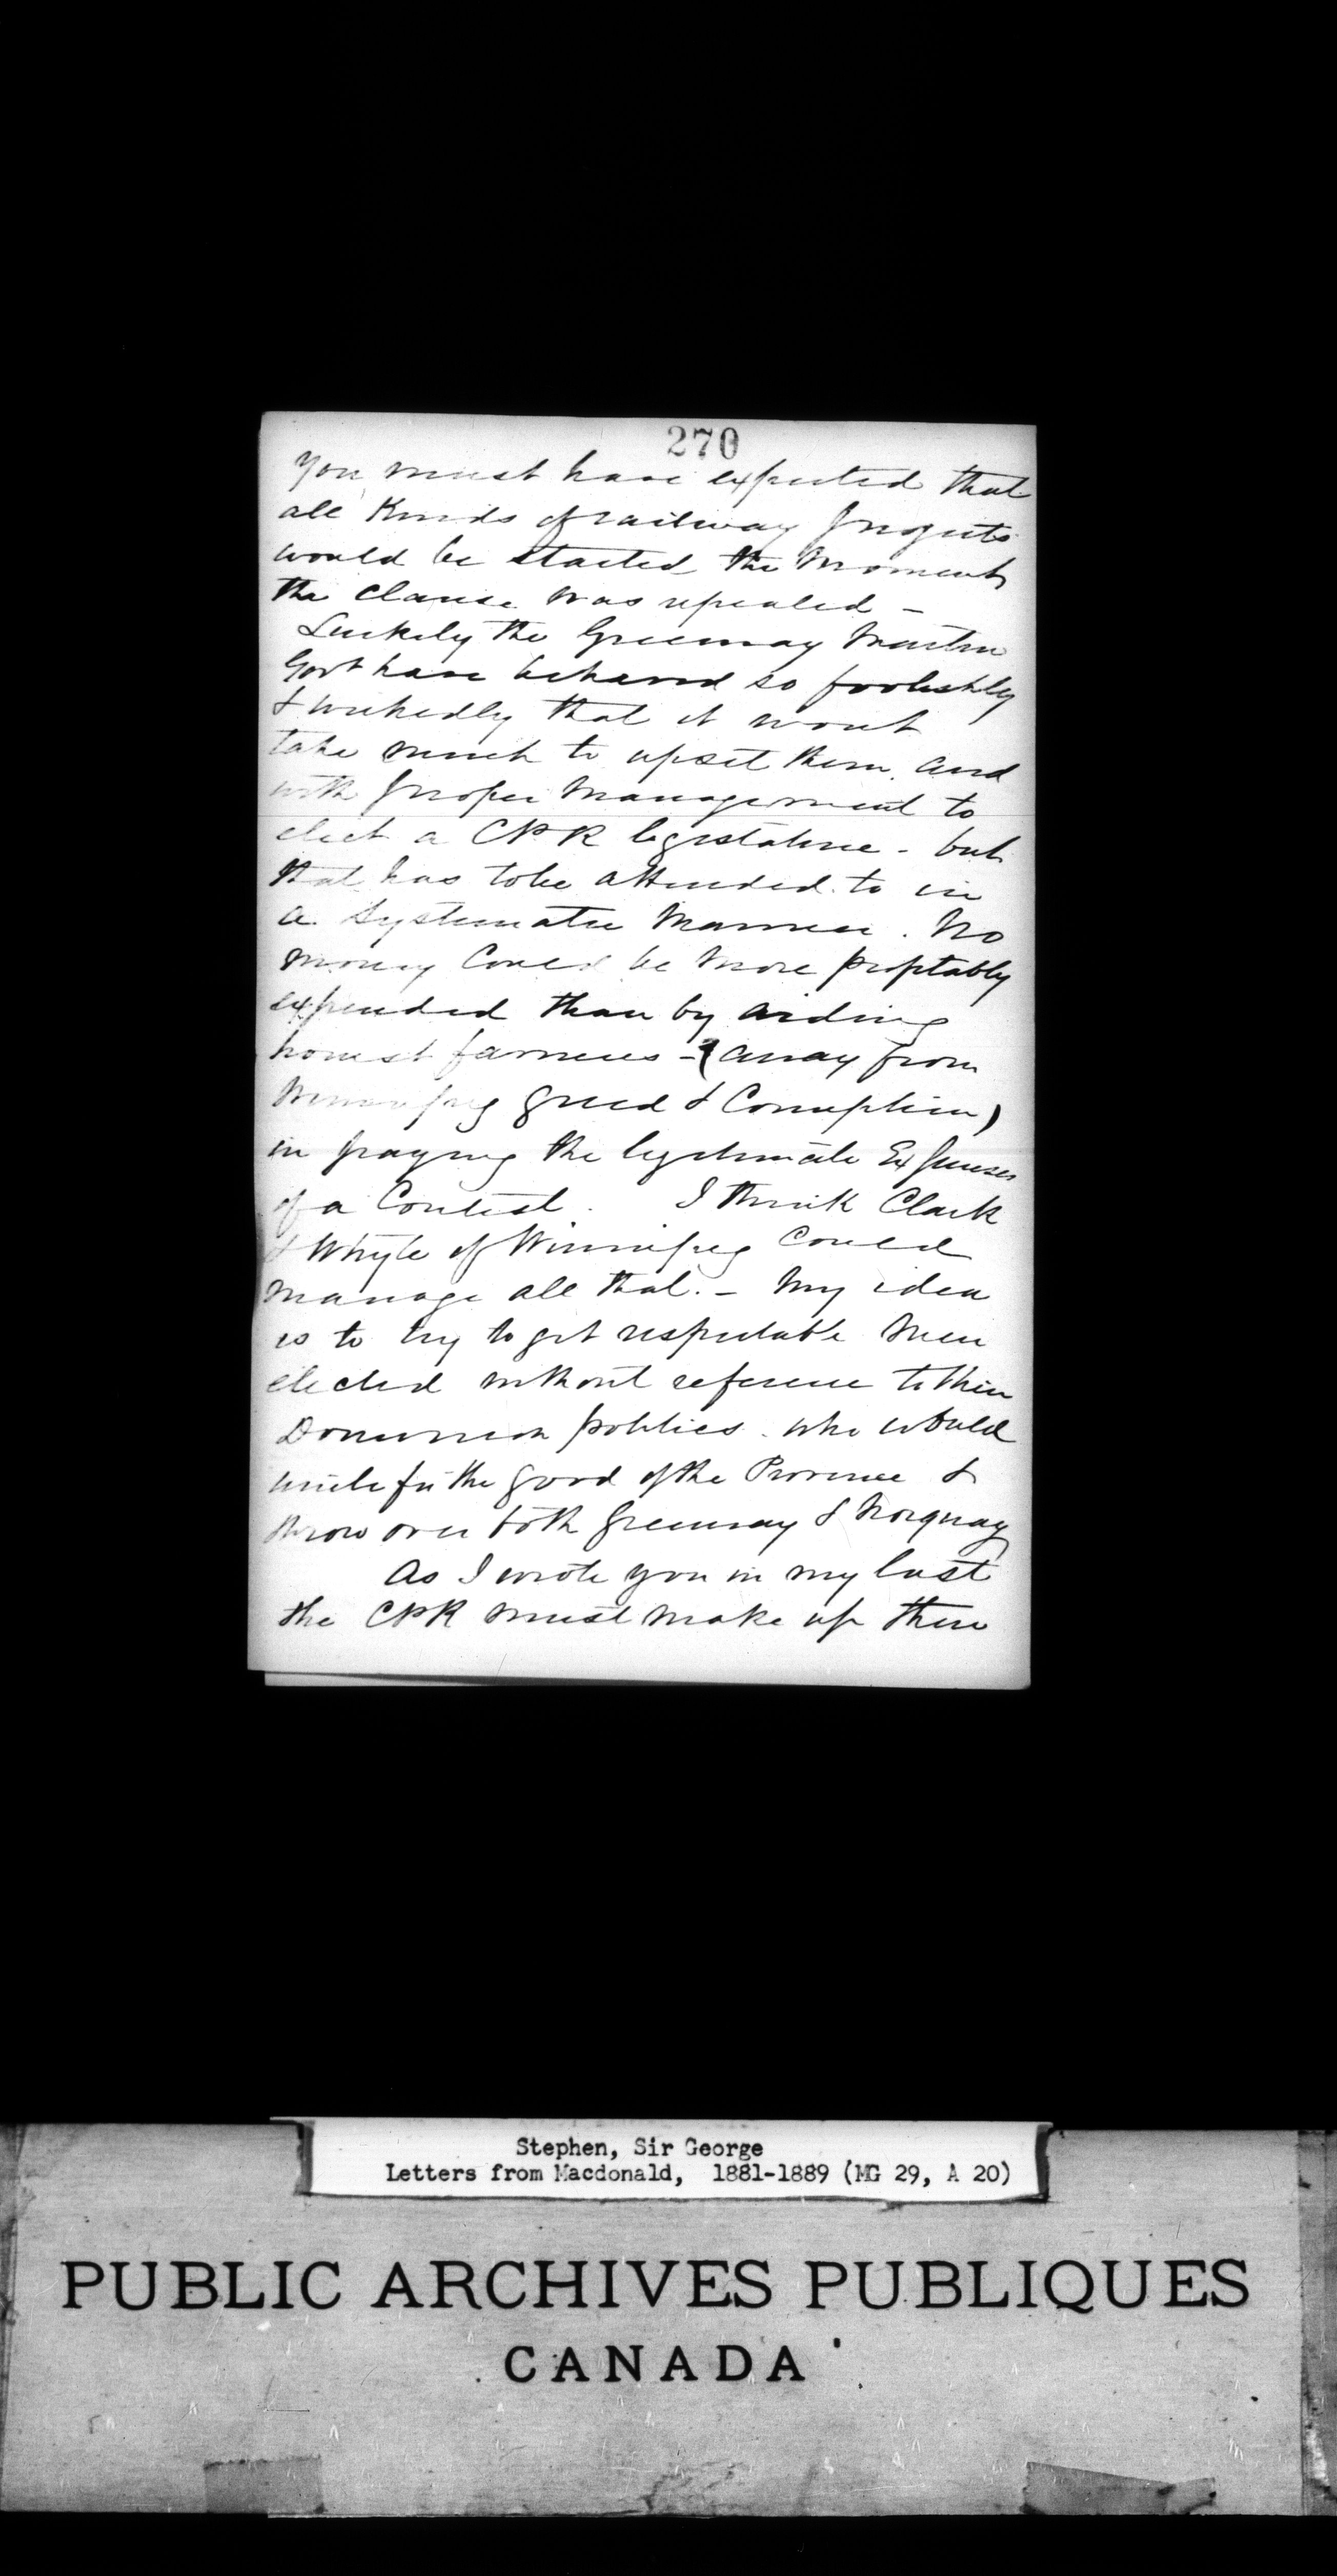 270
You must have expected that
all Kinds of railway projects
would be started the moment
the clause was repealed –
Luckily the Greenway Martin
Govt have behaved so foolishly
& wickedly that it wont
take much to upset them. and
with proper management to
elect a CPR legislature – but
that has to be attended to in
a systematic manner. No
money could be more profitably
expended than by aiding
honest farmers – (away from
Winnipeg greed & Corruption)
in paying the legitimate Expenses
of a Contest. I think Clark
& Whyte of Winnipeg could
manage all that. – My idea
is to try to get respectable men
elected without reference to their
Dominion politics. who would
unite for the good of the Province &
throw over both Greenway & Norquay
As I wrote you in my last
the CPR must make up their
Stephen, Sir George
Letters from Macdonald, 1881-1889 (MG 29, A 20)
PUBLIC ARCHIVES PUBLIQUES
CANADA